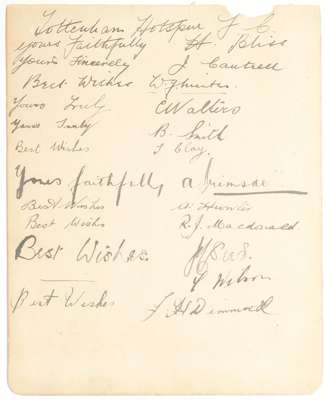 Tottenham Hotspur F. C.
Yours Faithfully H. Bliss
Yours Sincerely J. Cantrell
Best Wishes W. J. Hunter.
Yours Truly C Walters
Yours Truly B. Smith
Best Wishes T Clay.
Yours faithfully, A Grimsdell
Best Wishes A. Hunter
Best Wishes R. J. Macdonald
Best Wishes.
C Wilson
Best Wishes J H Dimmock